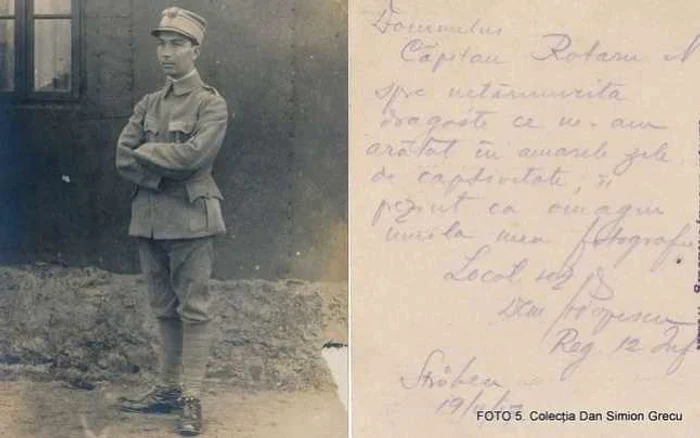 Domnului
Căpitan Rotaru N
spre nețărmurita
dragoste ce ne-am
arătat în amarele zile
de captivitate, îi
prezint ca omagiu
umila mea fotografi
Locot
Popescu
Reg. 12 Inf
Ströhen
FOTO 5. Colecția Dan Simion Grecu